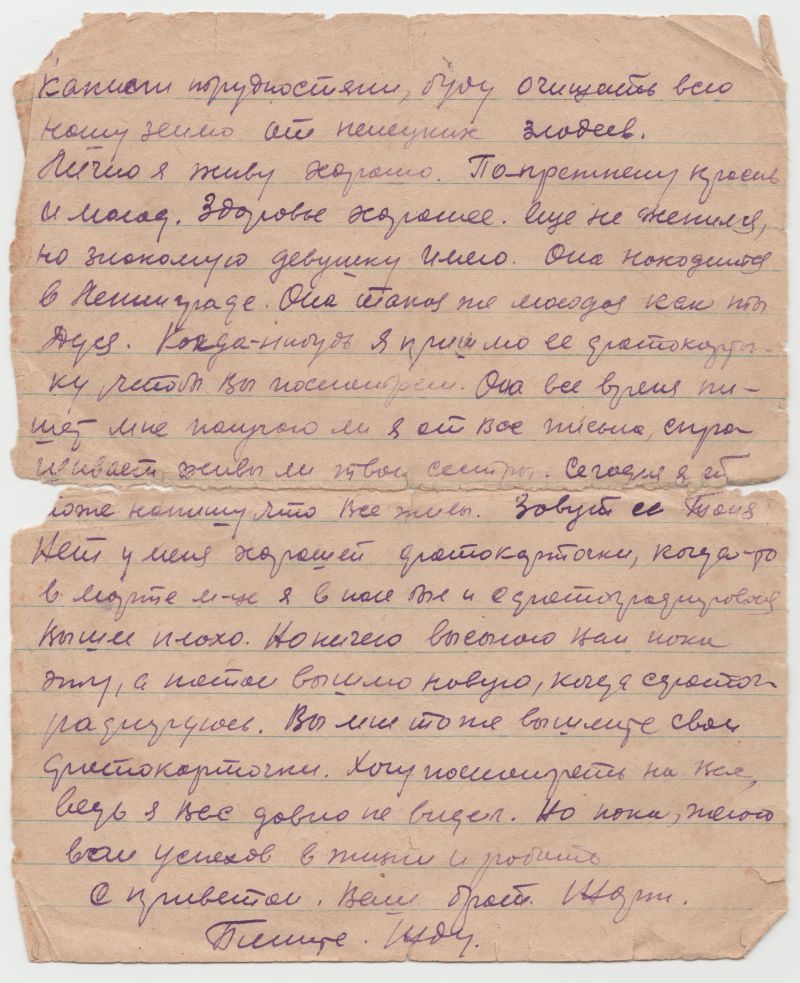 какими трудностями, буду очищать всю
нашу землю от немецких злодеев.
Лично я живу хорошо. По-прежнему красив
и молод. Здоровье хорошее. Еще не женился,
но знакомую девушку имею. Она находится
в Ленинграде. Она такая же молодая как ты
Дуся. Когда-нибудь я пришлю ее фотокарточ-
ку, чтобы Вы посмотрели. Она все время пи-
шет мне получаю ли я от Вас письма, спра
шивает, живы ли твои сестры. Сегодня я ей
тоже напишу, что Все живы. Зовут ее Таня
Нет у меня хорошей фотокарточки, когда-то
в марте м-це я в поле же и сфотографировался
вышел плохо. Но ничего высылаю Вам пока
эту, а потом вышлю новую, когда сфотог-
рафируюсь. Вы мне тоже вышлите свои
фотокарточки. Хочу посмотреть на Вас,
ведь я Вас давно не видел. Но пока, желаю
вам успехов в жизни и работе
С приветом. Ваш брат.
Пишите. Жду.